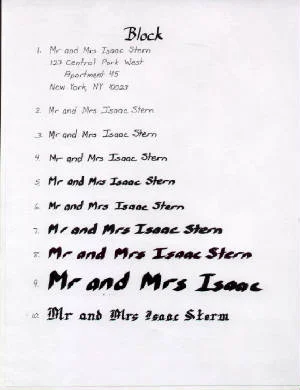 Block
1. Mr and Mrs Isaac Stern
123 Central Park West
Apartment 45
New York, NY 10023
2. Mr and Mrs Isaac Stern
3. Mr and Mrs Isaac Stern
4. Mr and Mrs Isaac Stern
5. Mr and Mrs Isaac Stern
6. Mr and Mrs Isaac Stern
7. Mr and Mrs Isaac Stern
8. Mr and Mrs Isaac Stern
9. Mr and Mrs Isaac
10. Mr and Mrs Isaac Sterm